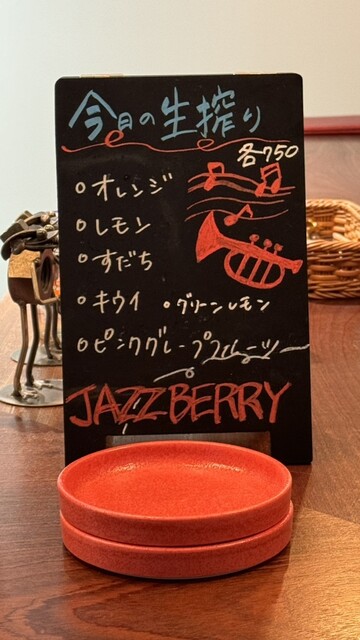 今日の生搾り
各750
○オレンジ
○レモン
○すだち
○キウイ ○グリーンレモン
○ピンクグレープフルーツ
JAZZBERRY